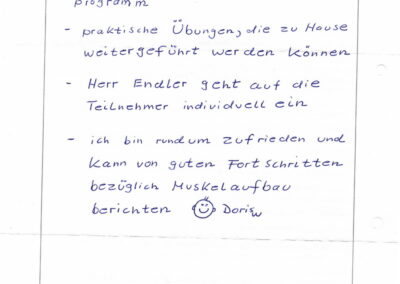 programm
- praktische Übungen, die zu Hause
weitergeführt werden können
- Herr Endler geht auf die
Teilnehmer individuell ein
- ich bin rundum zufrieden und
kann von guten Fortschritten
bezüglich Muskelaufbau
berichten Doris